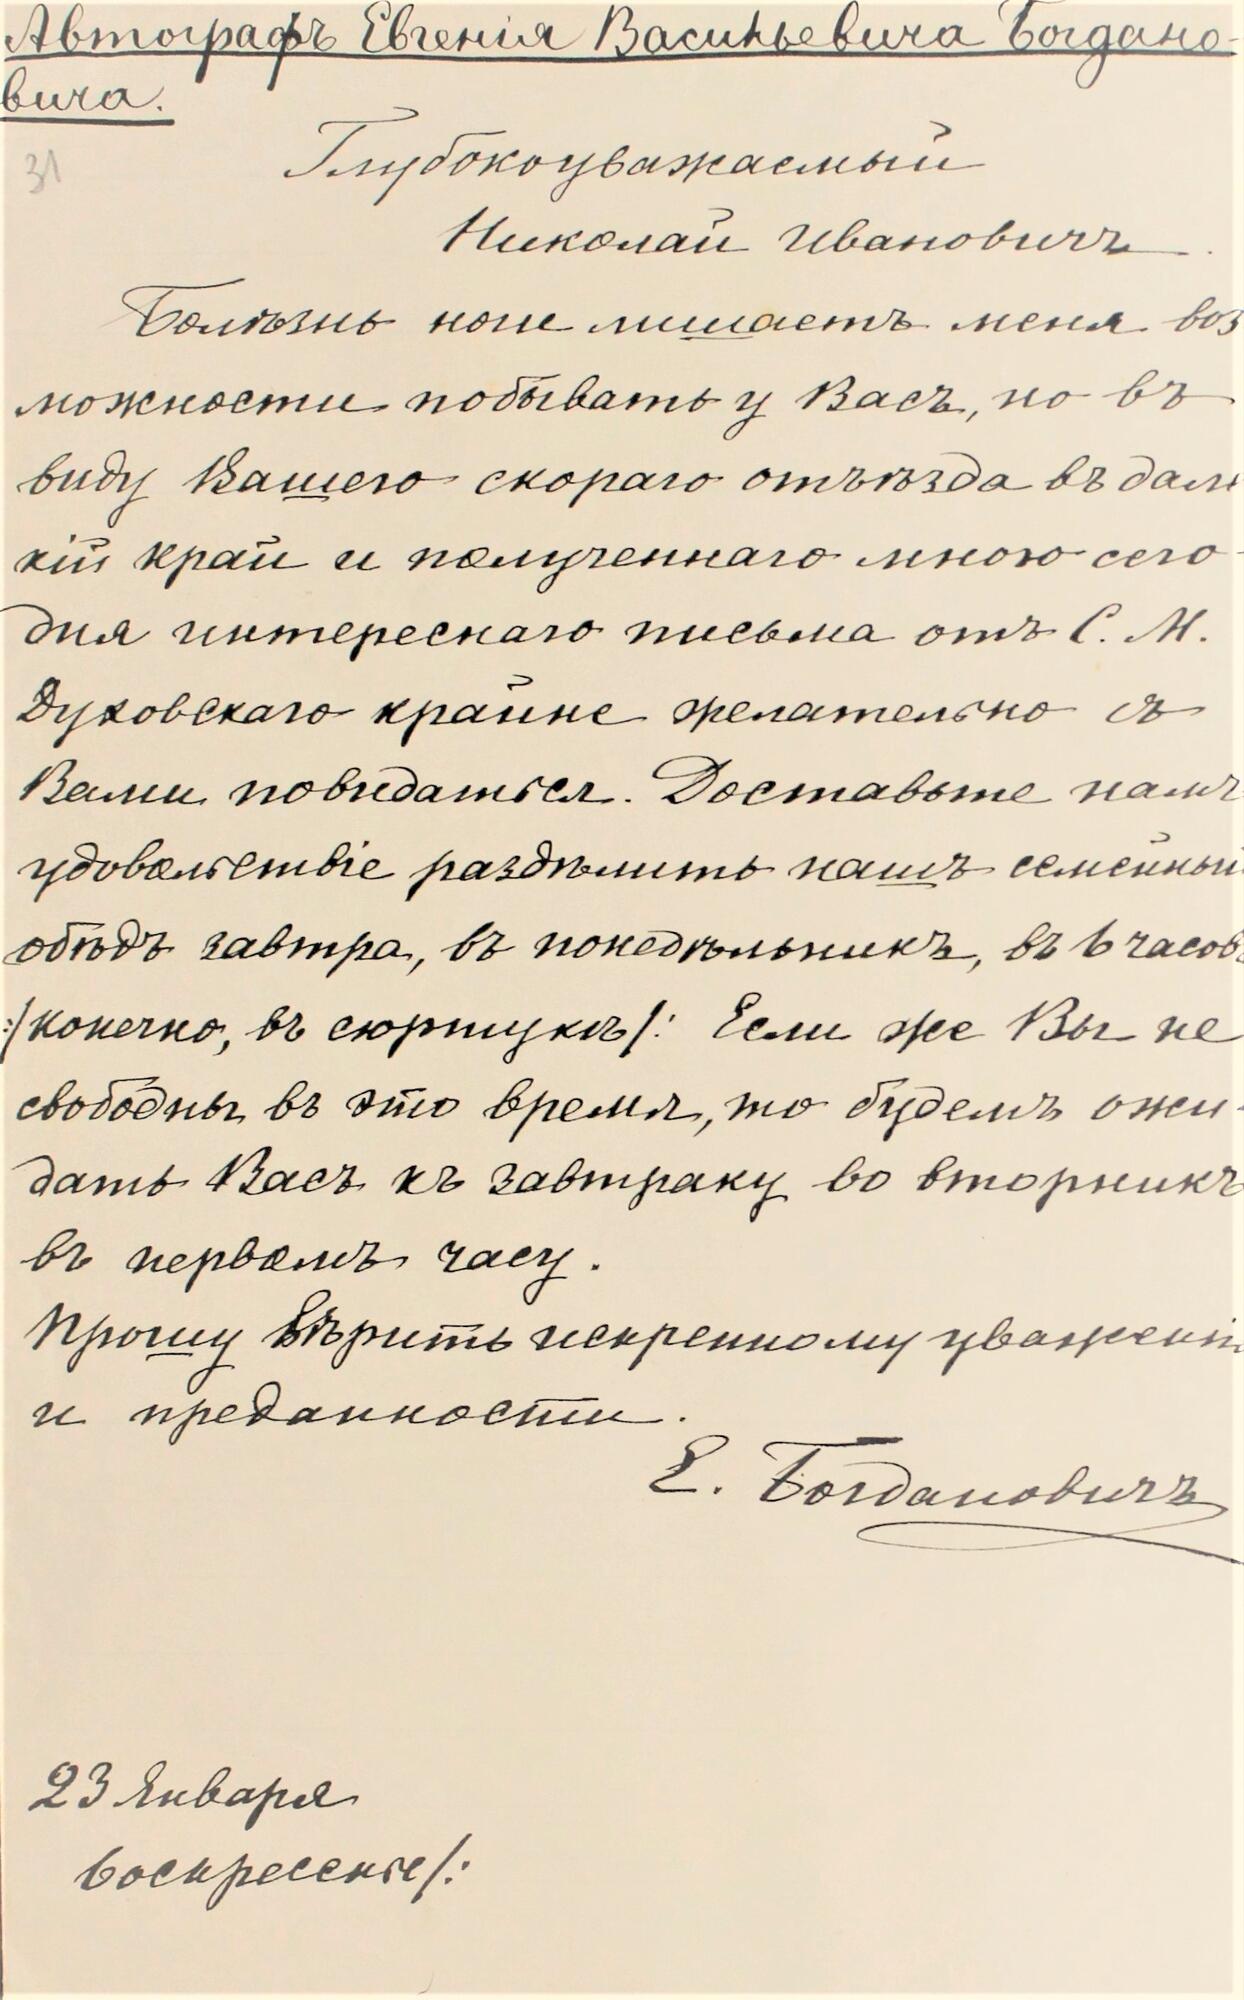 Автографъ Евгенія Васильевича Богдано-
вича.
31
Глубокоуважаемый
Николай Ивановичъ.
Болѣзнь ноги лишаетъ меня воз
можности побывать у Васъ, но въ
виду Вашего скораго отъѣзда въ дале
кій край и полученнаго мною сего-
дня интереснаго письма отъ С. М.
Духовскаго крайне желательно съ
Вами повидаться. Доставьте намъ
удовольствіе раздѣлить нашъ семейный
обѣдъ завтра, въ понедѣльникъ, въ 6 часовъ
:/конечно, въ сюртукѣ/: Если же Вы не
свободны въ это время, то будемъ ожи-
дать Васъ къ завтраку во вторникъ
въ первомъ часу.
Прошу вѣрить искренному уваженію
и преданности.
Е. Богдановичъ
23 Января
воскресенье/: